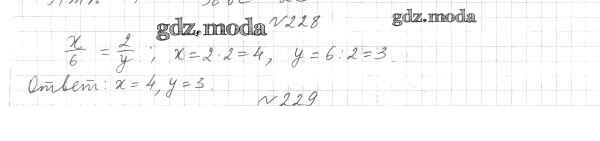 №228
gdz.moda
gdz.moda
x/6 = 2/y ; x=2·2=4, y=6:2=3.
Ответ: x=4, y=3.
№229